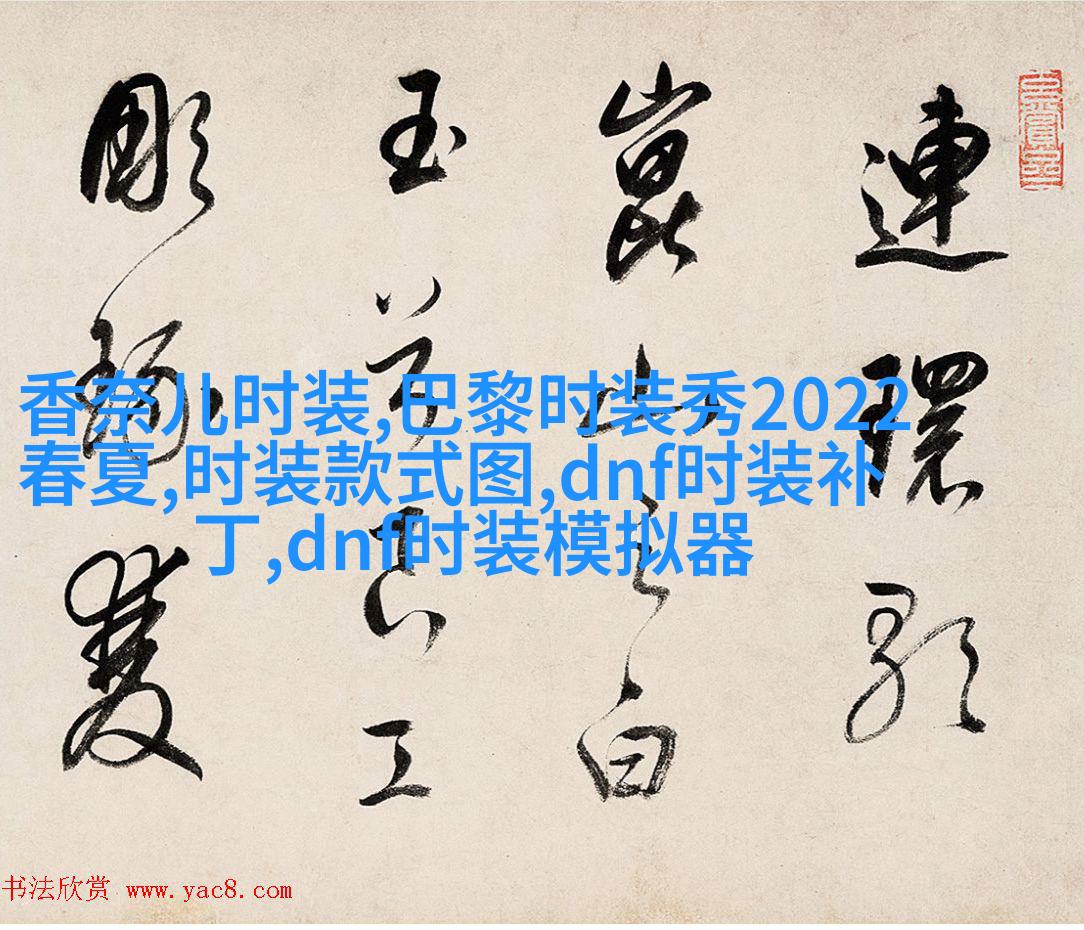 連環歌
崑山之白
玉兮良工
彫雙
香奈儿时装,巴黎时装秀2022
春夏,时装款式图,dnf时装补
丁,dnf时装模拟器
书法欣赏 www.yac8.com